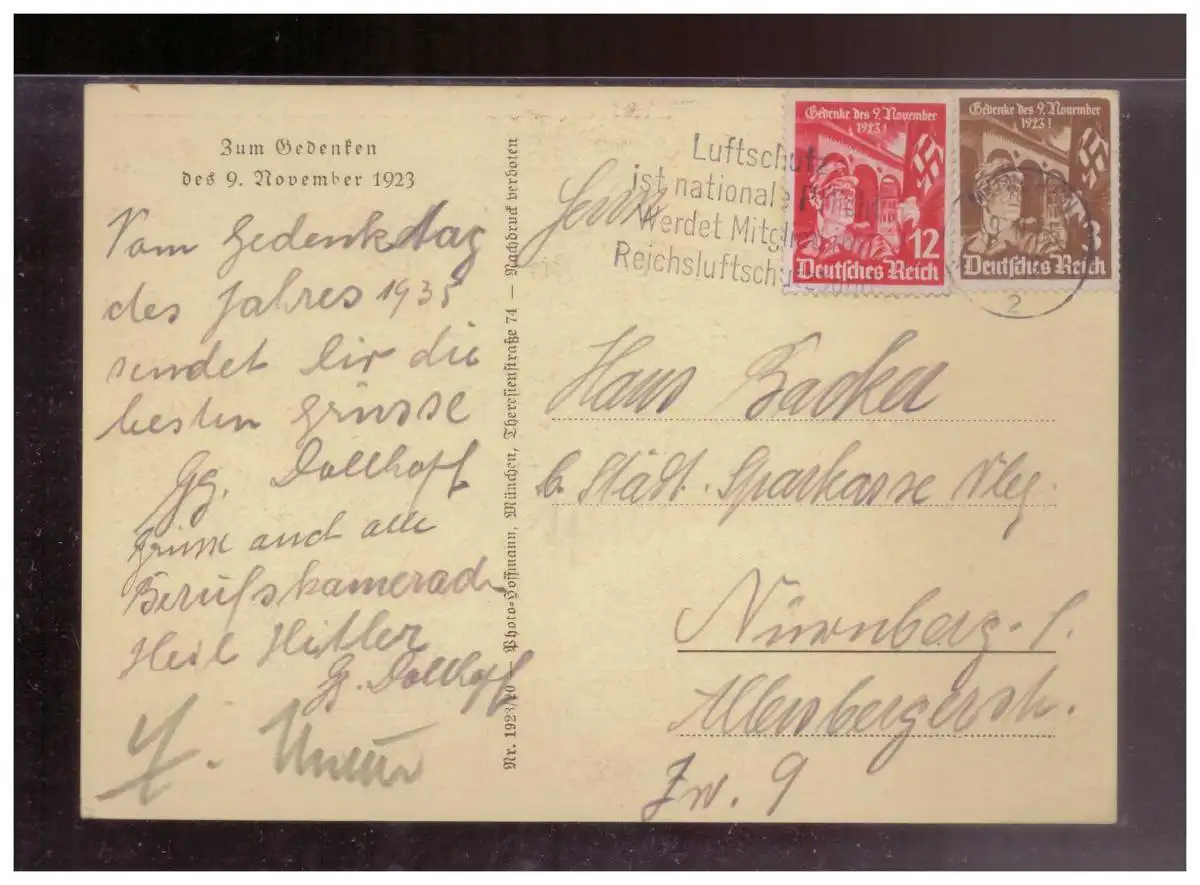 Zum Gedenken
des 9. November 1923
Vom Gedenktag
des Jahres 1935
sendet dir die
besten Grüsse
Gg. Dollhopf
Grüsse auch alle
Berufskamerad
Heil Hitler
Gg. Dollhopf
Nr. 1923/10 — Photo-Hoffmann, München, Theresienstraße 74 — Nachdruck verboten
Luftschutz
ist nationale Pflicht
Werdet Mitglied im
Reichsluftschutzbund
Gedenke des 9. November
1923!
12
Deutsches Reich
Gedenke des 9. November
1923!
3
Deutsches Reich
2
Herrn
Hans Backer
b. Städt. Sparkasse Nbg.
Nürnberg-S.
Allersbergerstr.
Zw. 9